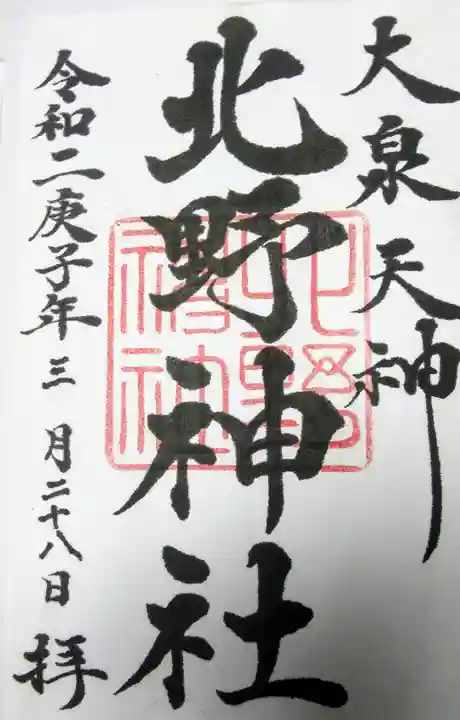 大泉天神
北野神社
北野神社
令和二庚子年三月二十八日 拝